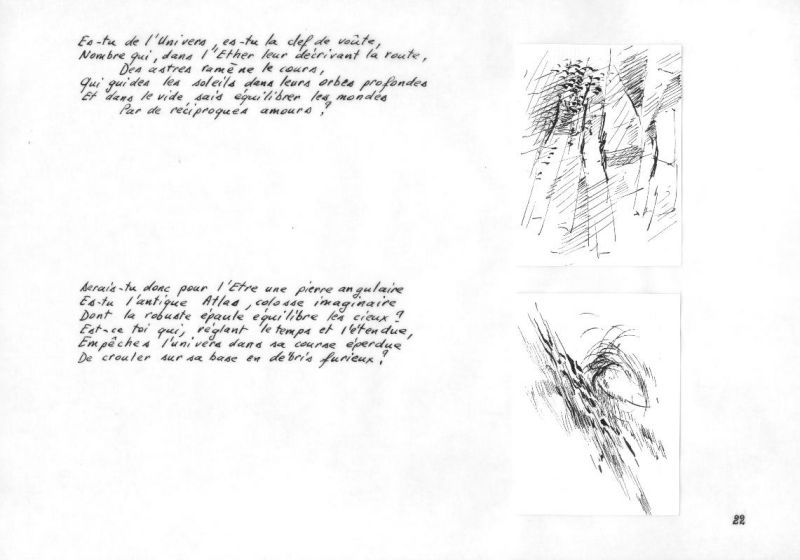 Es-tu de l'Univers, es-tu la clef de voûte,
Nombre qui, dans l'Ether leur décrivant la route,
Des astres ramène le cours,
Qui guides les soleils dans leurs orbes profondes
Et dans le vide sais équilibrer les mondes
Par de réciproques amours ?
Serais-tu donc pour l'Etre une pierre angulaire
Es-tu l'antique Atlas, colosse imaginaire
Dont la robuste épaule équilibre les cieux ?
Est-ce toi qui, réglant le temps et l'étendue,
Empêches l'univers dans sa course éperdue
De crouler sur sa base en débris furieux ?
22